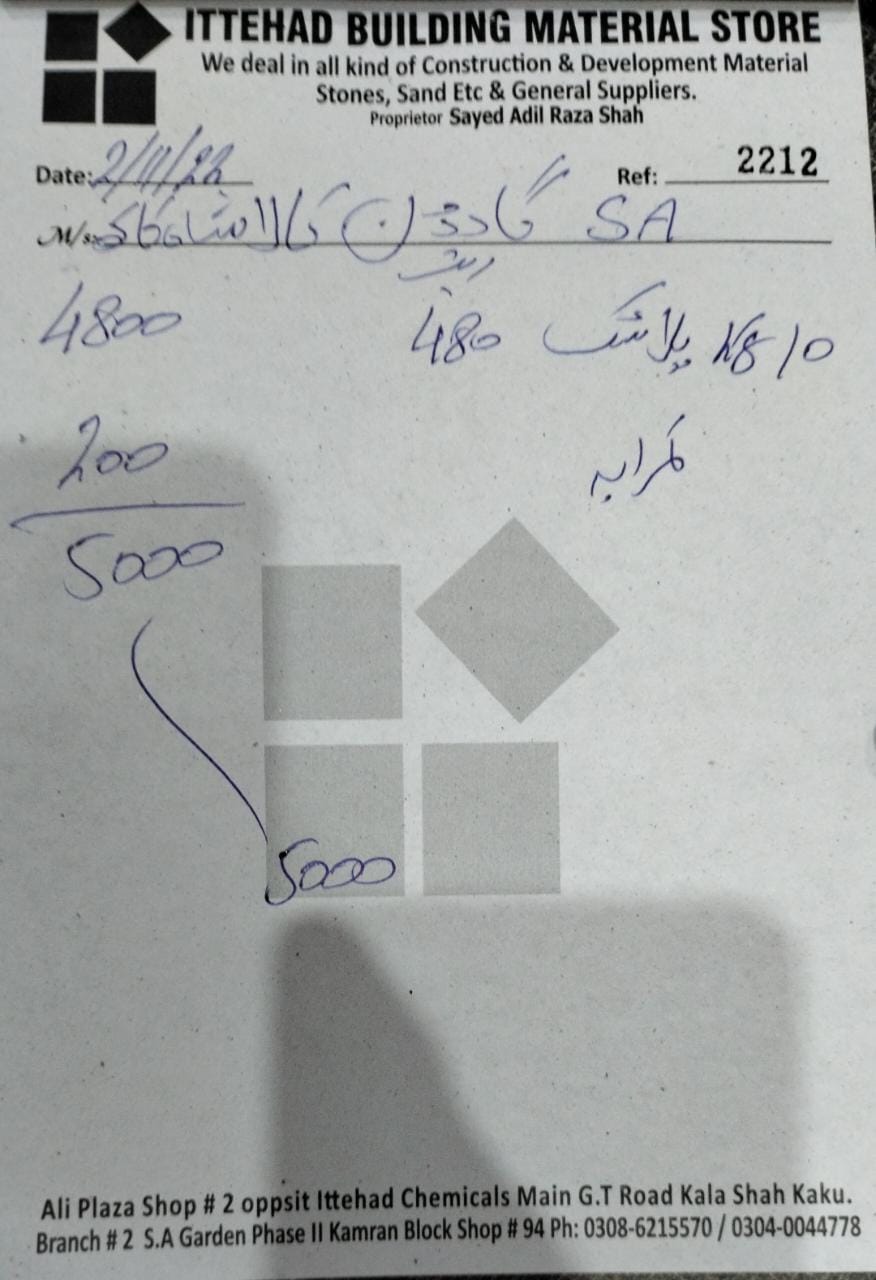 ITTEHAD BUILDING MATERIAL STORE
We deal in all kind of Construction & Development Material
Stones, Sand Etc & General Suppliers.
Proprietor Sayed Adil Raza Shah
Date: 2/11/22 Ref: 2212
M/s: SA گارڈن کالا شاہ کاکو
ریٹ
10 KG پلاسٹک 480 4800
کرایہ 200
5000
5000
Ali Plaza Shop # 2 oppsit Ittehad Chemicals Main G.T Road Kala Shah Kaku.
Branch # 2 S.A Garden Phase II Kamran Block Shop # 94 Ph: 0308-6215570 / 0304-0044778